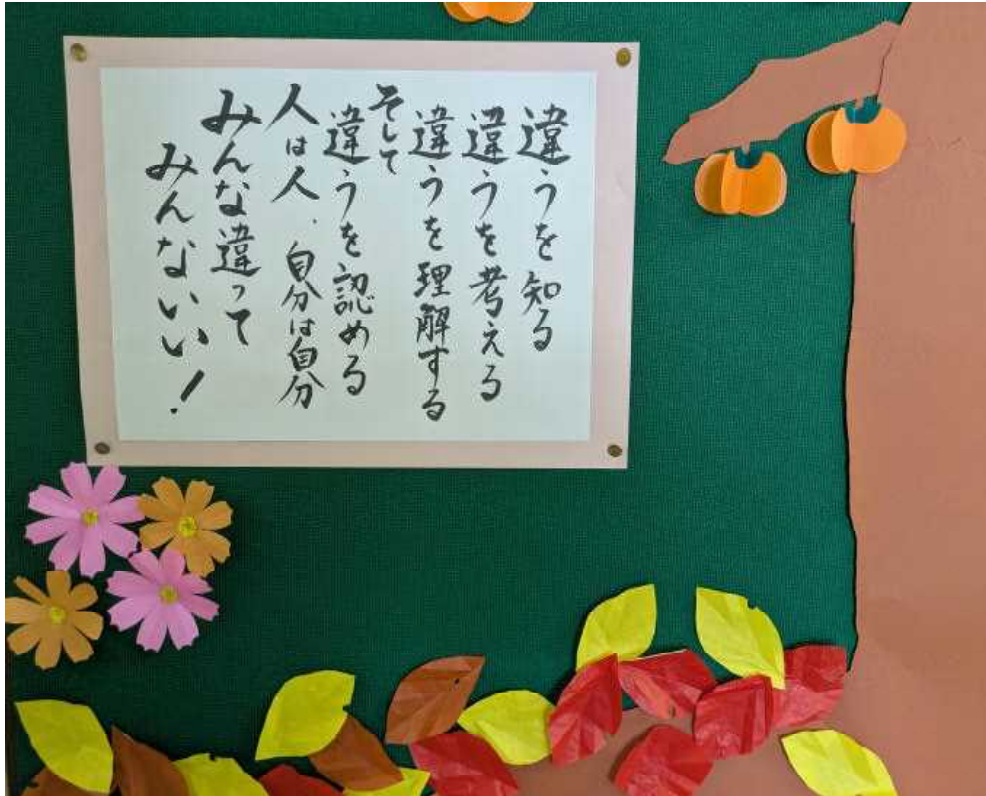 違うを知る
違うを考える
違うを理解する
そして
違うを認める
人は人、自分は自分
みんな違って
みんないい!